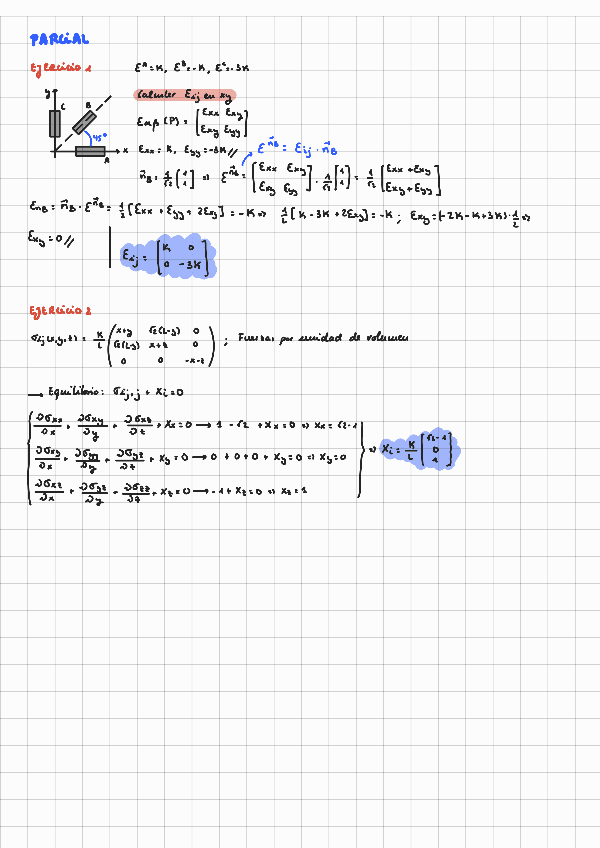 PARCIAL
EJERCICIO 1 εᴬ = K, εᴮ = -K, εᶜ = -3K
Calcular εij en xy
y C B 45° A x
εαβ (P) = [εxx εxy; εxy εyy]
εxx = K, εyy = -3K //
ε^n⃗B = εij · n⃗B
n⃗B = 1/√2 (1; 1) => ε^n⃗B = [εxx εxy; εxy εyy] · 1/√2 [1; 1] = 1/√2 [εxx + εxy; εxy + εyy]
εnB = n⃗B · ε^n⃗B = 1/2 [εxx + εyy + 2εxy] = -K => 1/2 [K - 3K + 2εxy] = -K ; εxy = (-2K - K + 3K) · 1/2 =>
εxy = 0 //
εij = [K 0; 0 -3K]
EJERCICIO 2
σij (x,y,z) = K/L (x+y √2(L-y) 0; √2(L-y) x+z 0; 0 0 -x-z) ; Fuerzas por unidad de volumen
→ Equilibrio: σij,j + Xi = 0
∂σxx/∂x + ∂σxy/∂y + ∂σxz/∂z + Xx = 0 → 1 - √2 + Xx = 0 => Xx = √2 - 1
∂σxy/∂x + ∂σyy/∂y + ∂σyz/∂z + Xy = 0 → 0 + 0 + 0 + Xy = 0 => Xy = 0
=> Xi = K/L [√2 - 1; 0; 1]
∂σxz/∂x + ∂σyz/∂y + ∂σzz/∂z + Xz = 0 → -1 + Xz = 0 => Xz = 1